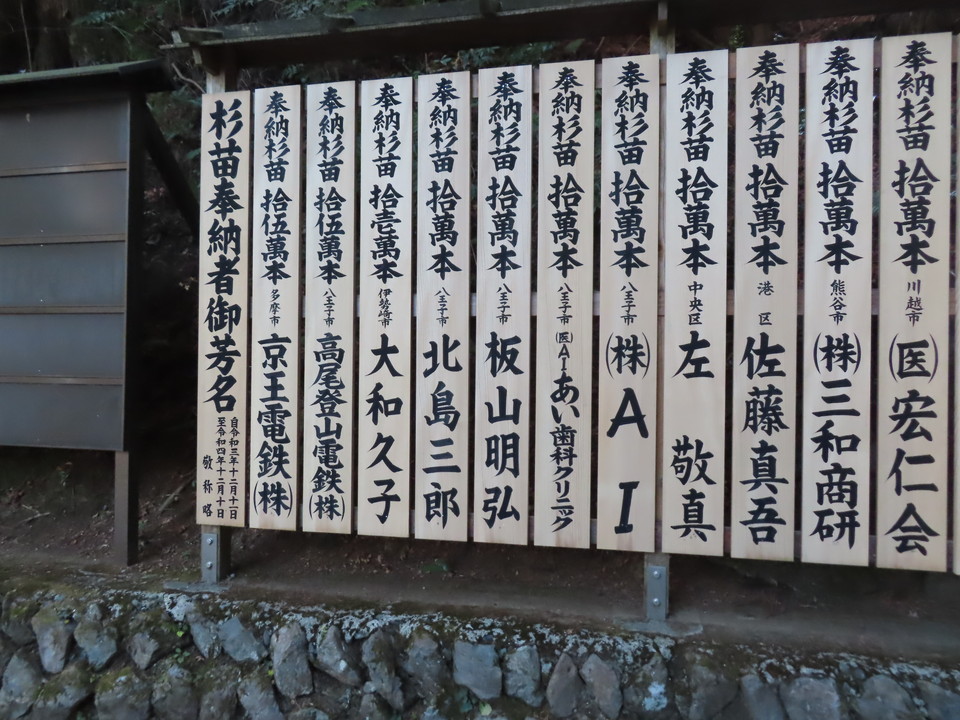 杉苗奉納者御芳名
自令和三年十二月十一日
至令和四年十二月十日
敬称略
奉納杉苗 拾伍萬本 多摩市 京王電鉄(株)
奉納杉苗 拾伍萬本 八王子市 高尾登山電鉄(株)
奉納杉苗 拾壱萬本 伊勢崎市 大和久子
奉納杉苗 拾萬本 八王子市 北島三郎
奉納杉苗 拾萬本 八王子市 板山明弘
奉納杉苗 拾萬本 八王子市 (医)AIあい歯科クリニック
奉納杉苗 拾萬本 八王子市 (株)AI
奉納杉苗 拾萬本 中央区 左敬真
奉納杉苗 拾萬本 港区 佐藤真吾
奉納杉苗 拾萬本 熊谷市 (株)三和商研
奉納杉苗 拾萬本 川越市 (医)宏仁会